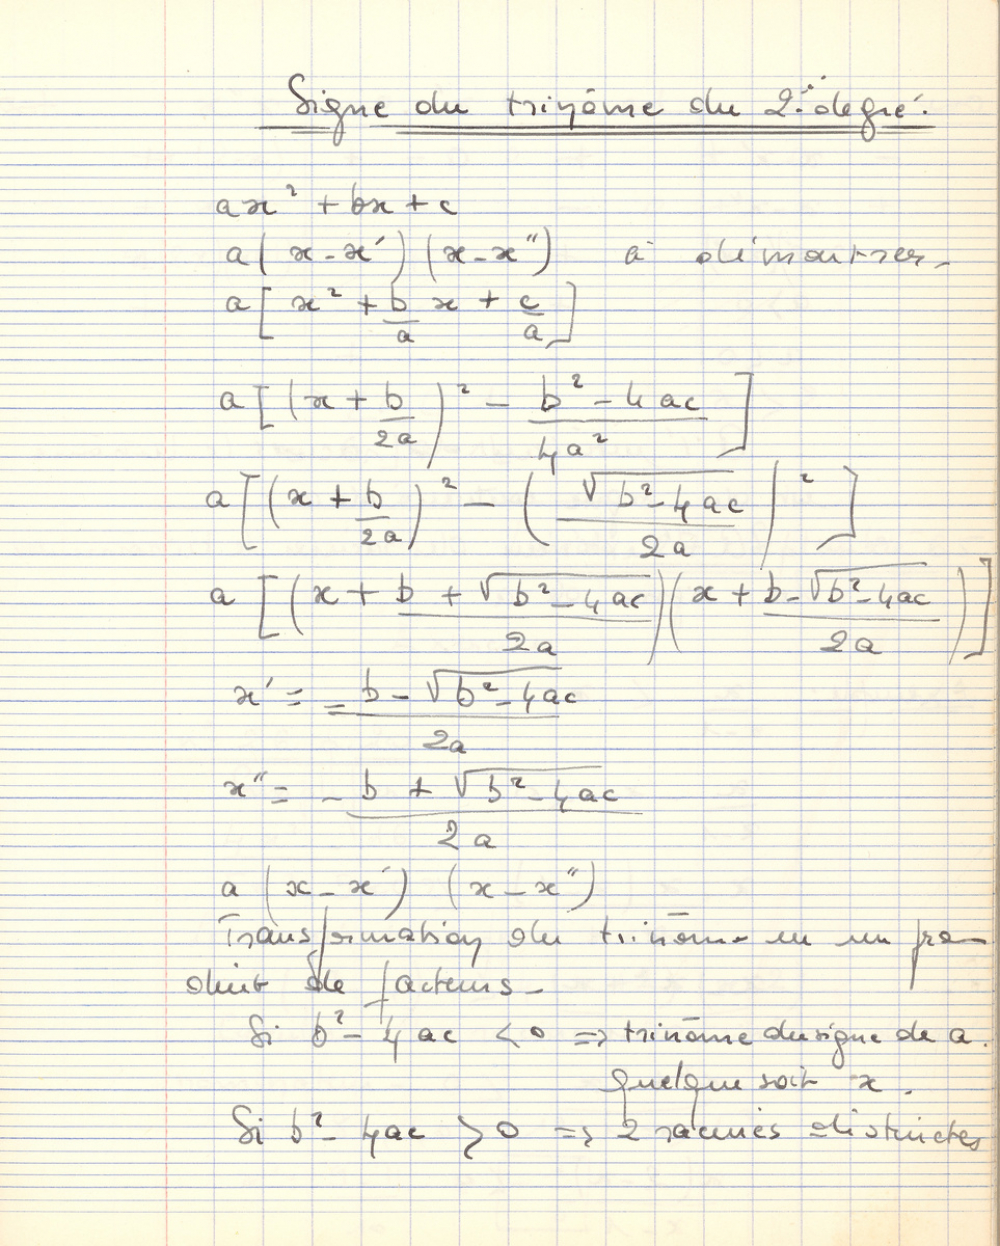 Signe du trinôme du 2° degré.
ax² + bx + c
a(x - x')(x - x'') à démontrer.
a[x² + b/a x + c/a]
a[(x + b/2a)² - (b² - 4ac)/4a²]
a[(x + b/2a)² - (√(b² - 4ac)/2a)²]
a[(x + (b + √(b² - 4ac))/2a)(x + (b - √(b² - 4ac))/2a)]
x' = (-b - √(b² - 4ac))/2a
x'' = (-b + √(b² - 4ac))/2a
a(x - x')(x - x'')
Transformation du trinôme en un pro-
duit de facteurs-
Si b² - 4ac < 0 => trinôme du signe de a.
quelque soit x.
Si b² - 4ac > 0 => 2 racines distinctes